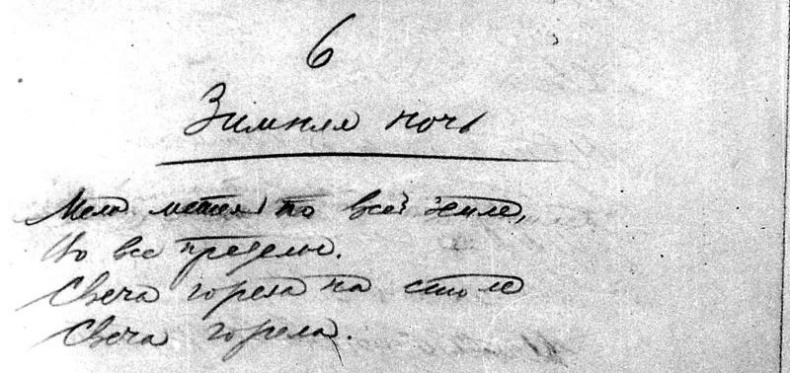 6
Зимняя ночь
Мела метель по всей земле,
Во все пределы.
Свеча горела на столе
Свеча горела.